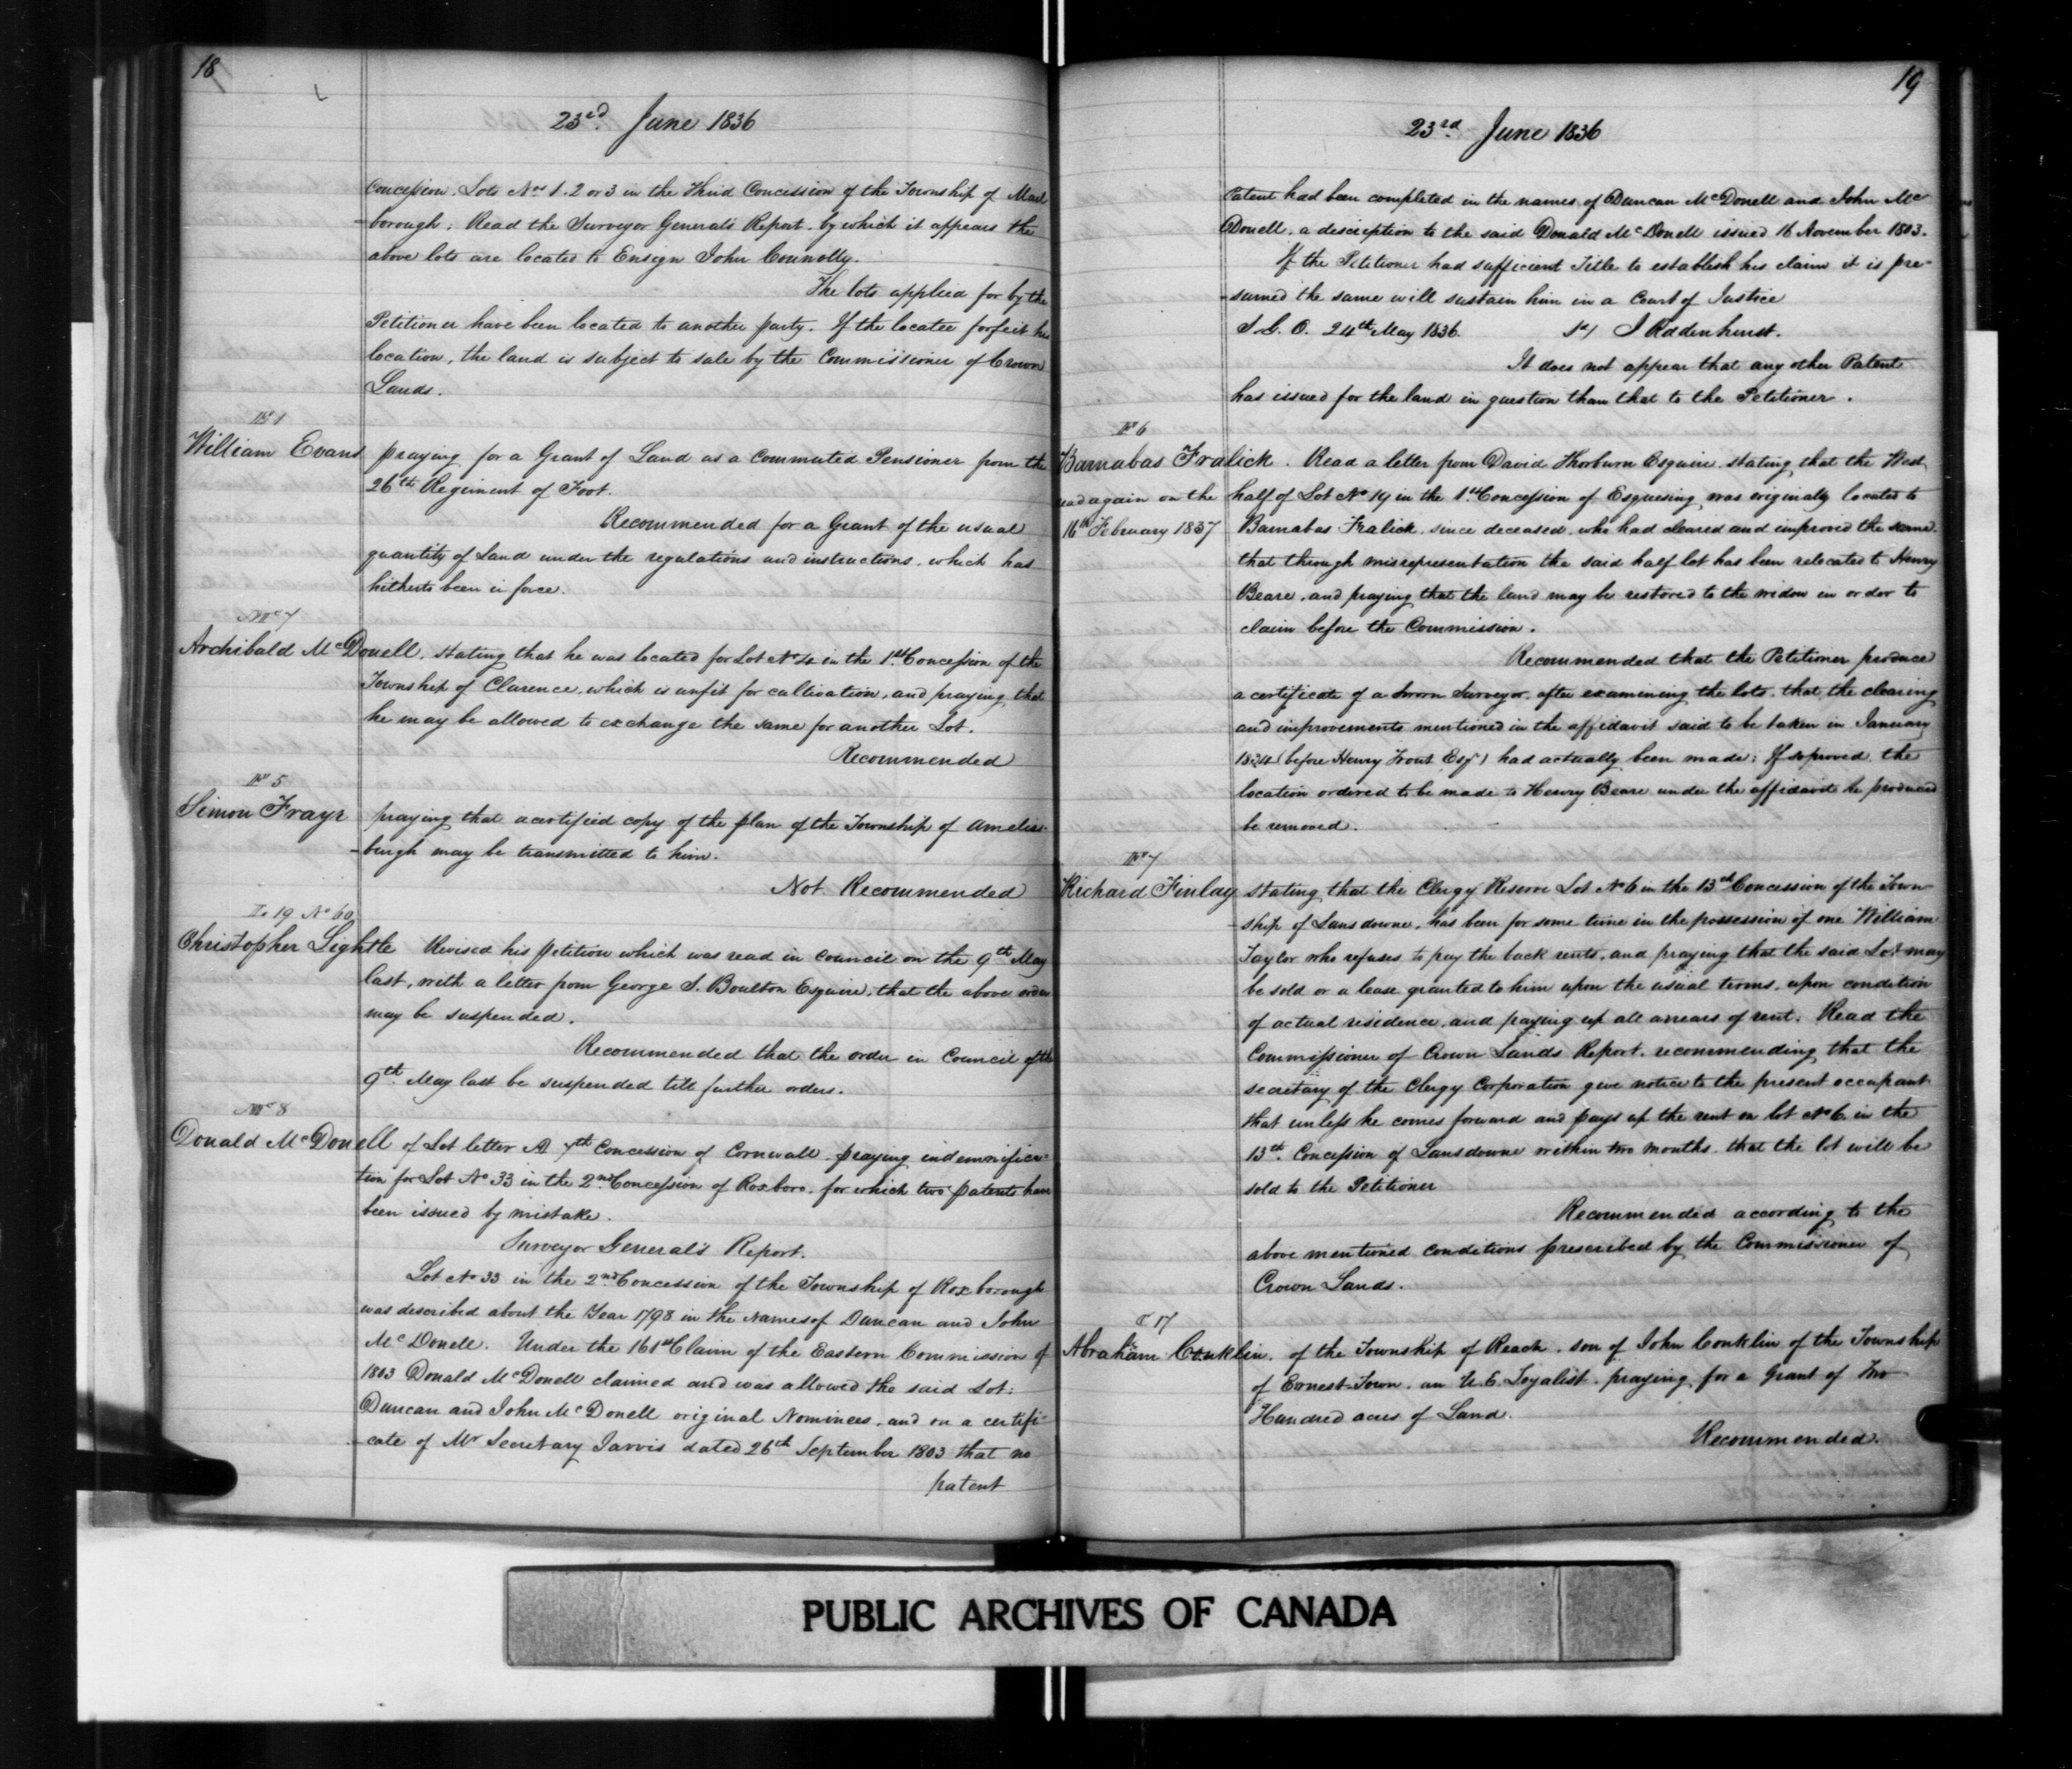 18
23rd June 1836
Concession. Lots Nos 1. 2 or 3 in the Third Concession of the Township of Marl
-borough; Read the Surveyor General's Report. by which it appears the
above lots are located to Ensign John Connolly.
The lots applied for by the
Petitioner have been located to another party. If the locatee forfeit his
location, the land is subject to sale by the Commissioner of Crown
Lands.
William Evans praying for a Grant of Land as a Commuted Pensioner from the
26th Regiment of Foot.
Recommended for a Grant of the usual
quantity of Land under the regulations and instructions, which has
hitherto been in force.
Archibald McDonell. stating that he was located for Lot No 4 in the 1st Concession of the
Township of Clarence, which is unfit for cultivation, and praying that
he may be allowed to exchange the same for another Lot.
Recommended
Simon Frayr praying that a certified copy of the plan of the Township of Amelias-
-burgh may be transmitted to him.
Not Recommended
19 No 60
Christopher Lightle Revised his Petition which was read in Council on the 9th May
last, with a letter from George S. Boulton Esquire, that the above order
may be suspended.
Recommended that the order in Council of the
9th May last be suspended till further orders.
Donald McDonell of Lot letter A 7th Concession of Cornwall. praying indemnifica-
tion for Lot No 33 in the 2nd Concession of Roxboro. for which two patents have
been issued by mistake.
Surveyor General's Report.
Lot No 33 in the 2nd Concession of the Township of Roxborough
was described about the Year 1798 in the Names of Duncan and John
McDonell. Under the 161st Claim of the Eastern Commission of
1803 Donald McDonell claimed and was allowed the said Lot:
Duncan and John McDonell original Nominees, and on a certifi-
-cate of Mr Secretary Jarvis dated 26th September 1803 that no
patent
19
23rd June 1836
Patent had been completed in the names of Duncan McDonell and John Mc
Donell, a description to the said Donald McDonell issued 16 November 1803.
If the Petitioner had sufficient Title to establish his claim it is pre-
-sumed the same will sustain him in a Court of Justice
S. G. O. 24th May 1836. J Radenhurst.
It does not appear that any other Patent
has issued for the land in question than that to the Petitioner.
Barnabas Fralick. Read a letter from David Thorburn Esquire. stating that the West
read again on the half of Lot No 19 in the 1st Concession of Esquesing was originally located to
16th February 1837 Barnabas Fralick. since deceased, who had cleared and improved the same.
that through misrepresentation the said half lot has been relocated to Henry
Beare, and praying that the land may be restored to the widow in order to
claim before the Commission.
Recommended that the Petitioner produce
a certificate of a Sworn Surveyor, after examining the lots. that the clearing
and improvements mentioned in the affidavit said to be taken in January
1824 (before Henry Trout Esqr) had actually been made; If so proved the
location ordered to be made to Henry Beare under the affidavits he produced
be removed.
Richard Finlay stating that the Clergy Reserve Lot No 6 in the 13th Concession of the Town-
-ship of Lansdowne. has been for some time in the possession of one William
Taylor who refuses to pay the back rents, and praying that the said Lot may
be sold or a lease granted to him upon the usual terms. upon condition
of actual residence, and paying up all arrears of rent. Read the
Commissioner of Crown Lands Report. recommending that the
secretary of the Clergy Corporation give notice to the present occupant
that unless he comes forward and pays up the rent on lot No 6 in the
13th Concession of Lansdowne within two months, that the lot will be
sold to the Petitioner
Recommended according to the
above mentioned conditions prescribed by the Commissioner of
Crown Lands.
C 17
Abraham Conklin. of the Township of Reach. son of John Conklin of the Township
of Ernest-Town. an U.E. Loyalist. praying for a Grant of Two
Hundred acres of Land.
Recommended.
PUBLIC ARCHIVES OF CANADA